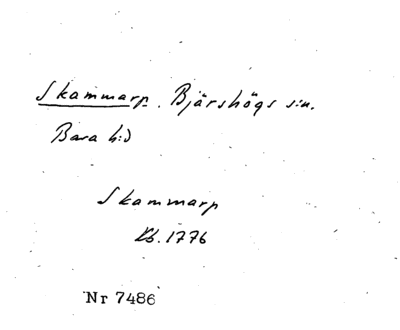 Skammarp. Bjärshögs s:n.
Bara h:d
Skammarp
Kb. 1776
Nr 7486